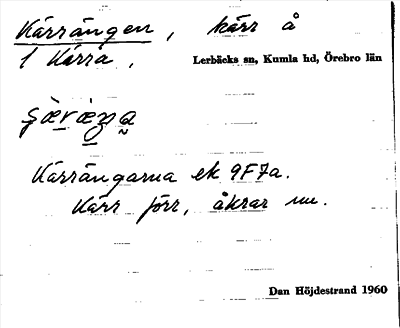 Kärrängen, kärr å
1 Kårra,
Lerbäcks sn, Kumla hd, Örebro län
Kärrängarna ek 9F7a.
Kärr förr, åkrar nu.
Dan Höjdestrand 1960